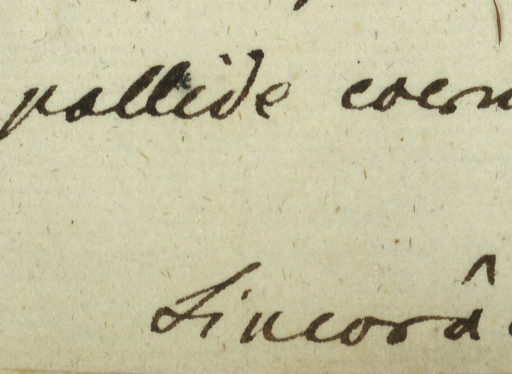 pallide coeru
Sincorâ